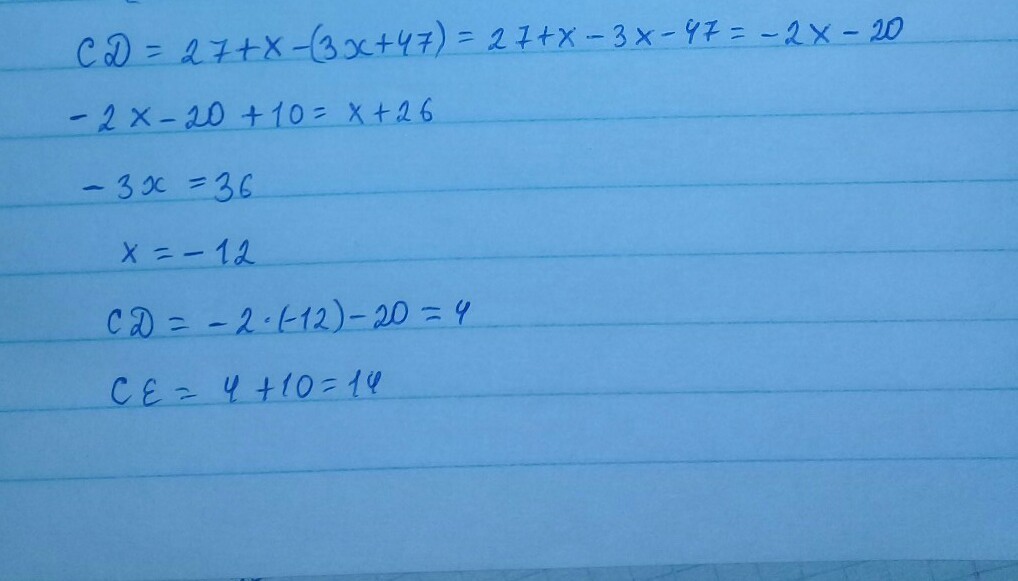 CD = 27+x-(3x+47) = 27+x-3x-47 = -2x-20
-2x-20+10 = x+26
-3x = 36
x = -12
CD = -2·(-12)-20 = 4
CE = 4+10=14